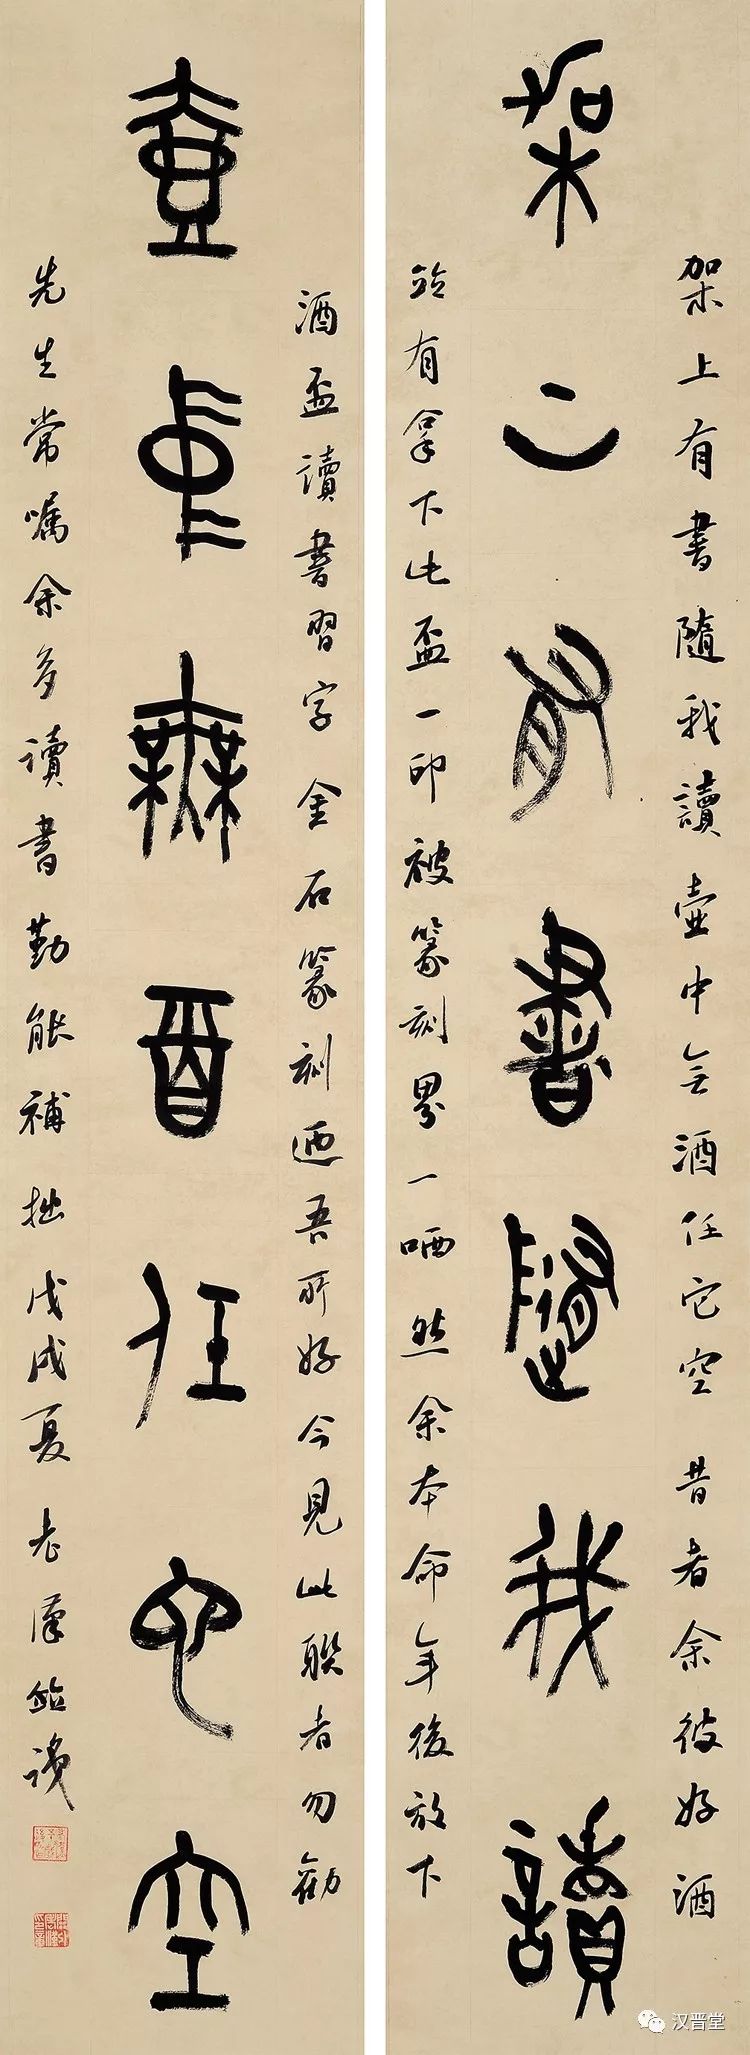 架上有書隨我讀壺中無酒任它空昔者余彼好酒
架上有書隨我讀
竝有拿下此盃一印被篆刻界一哂然余本命年後放下
酒盃讀書習字金石篆刻迺吾所好今見此聯者勿勸
壺中無酒任它空
先生常囑余多讀書勤能補拙戊戌夏老漢竝識
汉晋堂